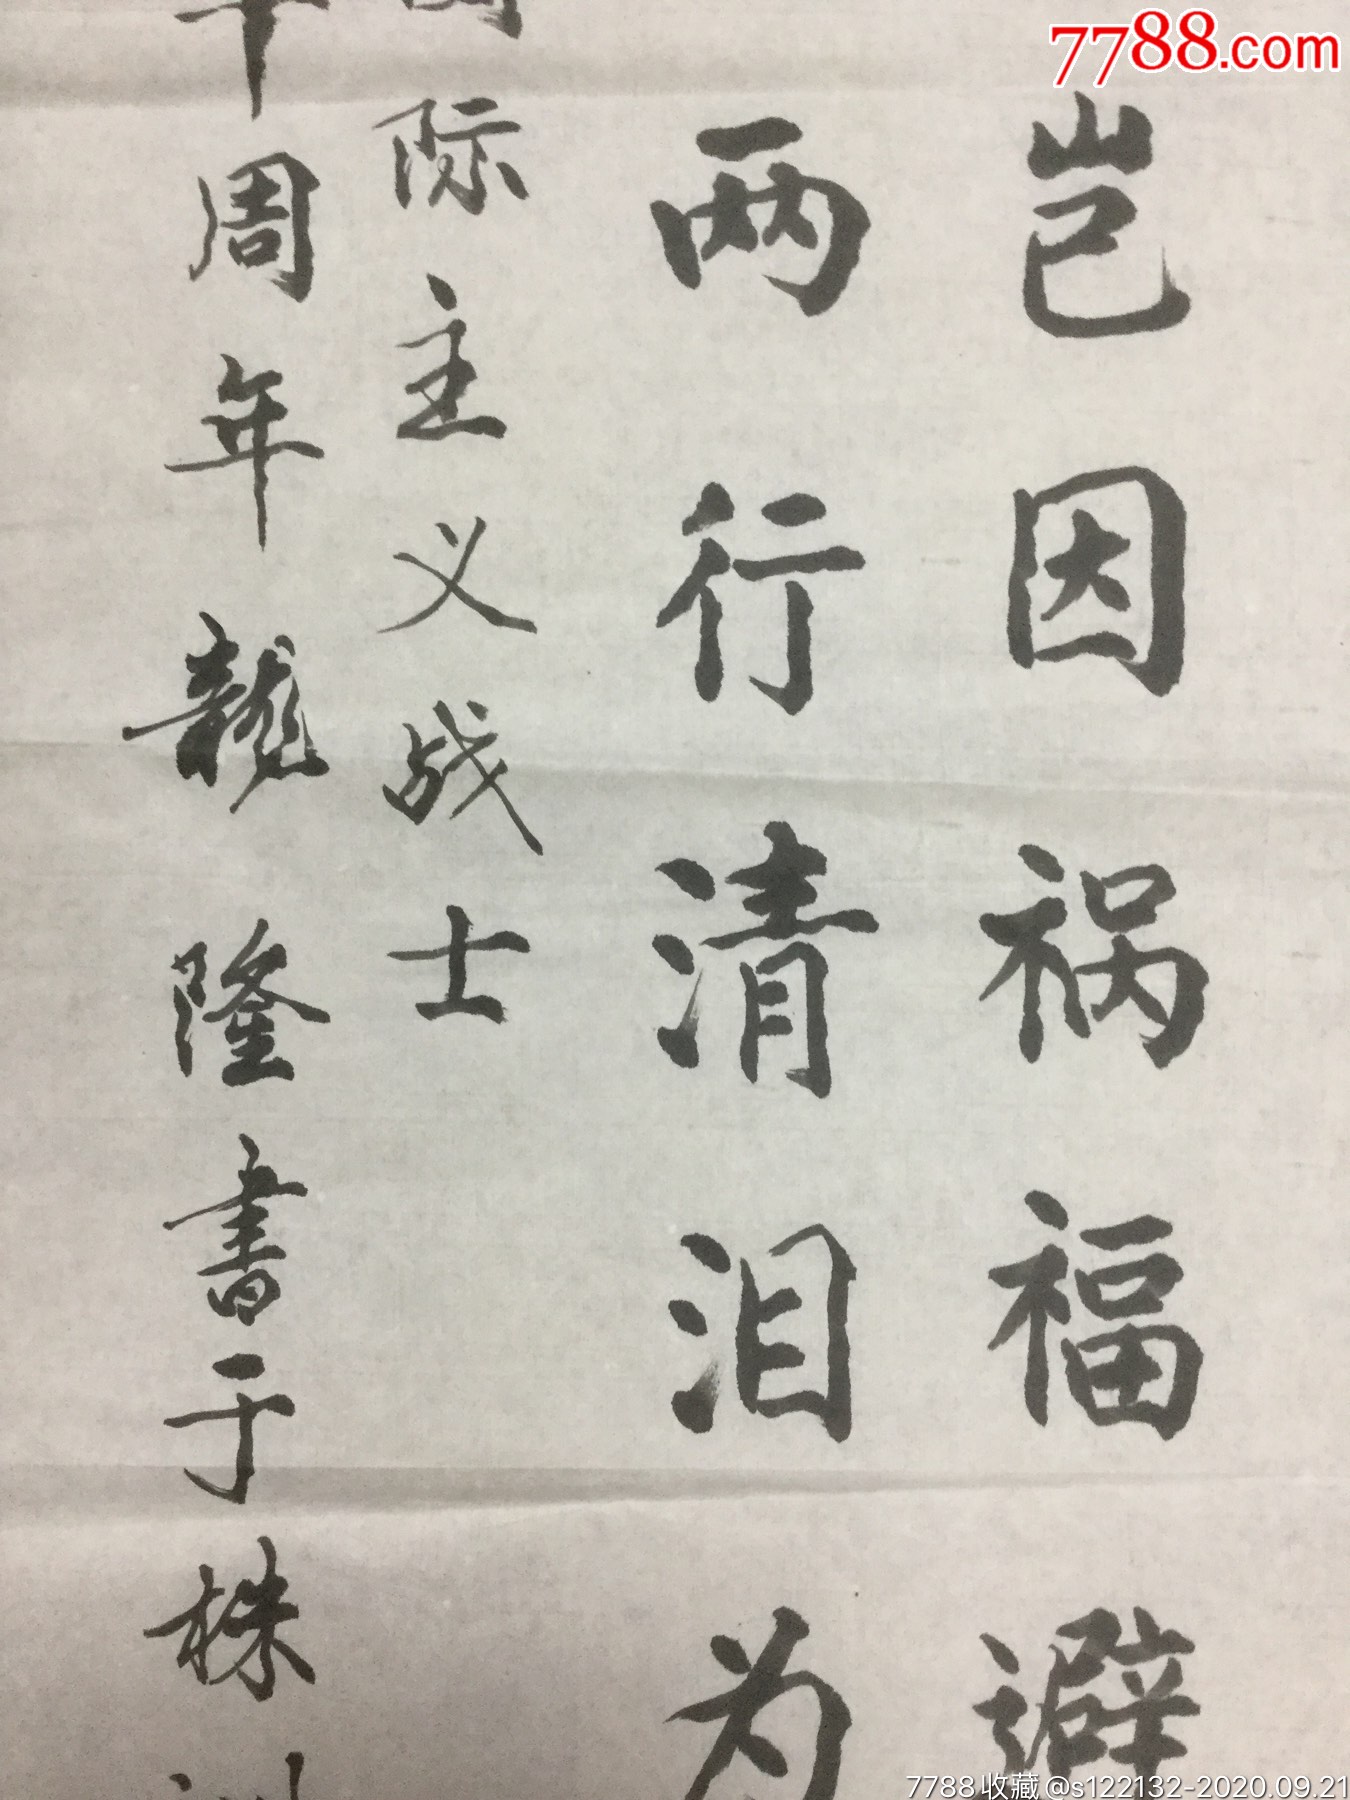 7788.com
岂因祸福避
两行清泪为
际主义战士
周年龙隆書于株
7788收藏@s122132-2020.09.21